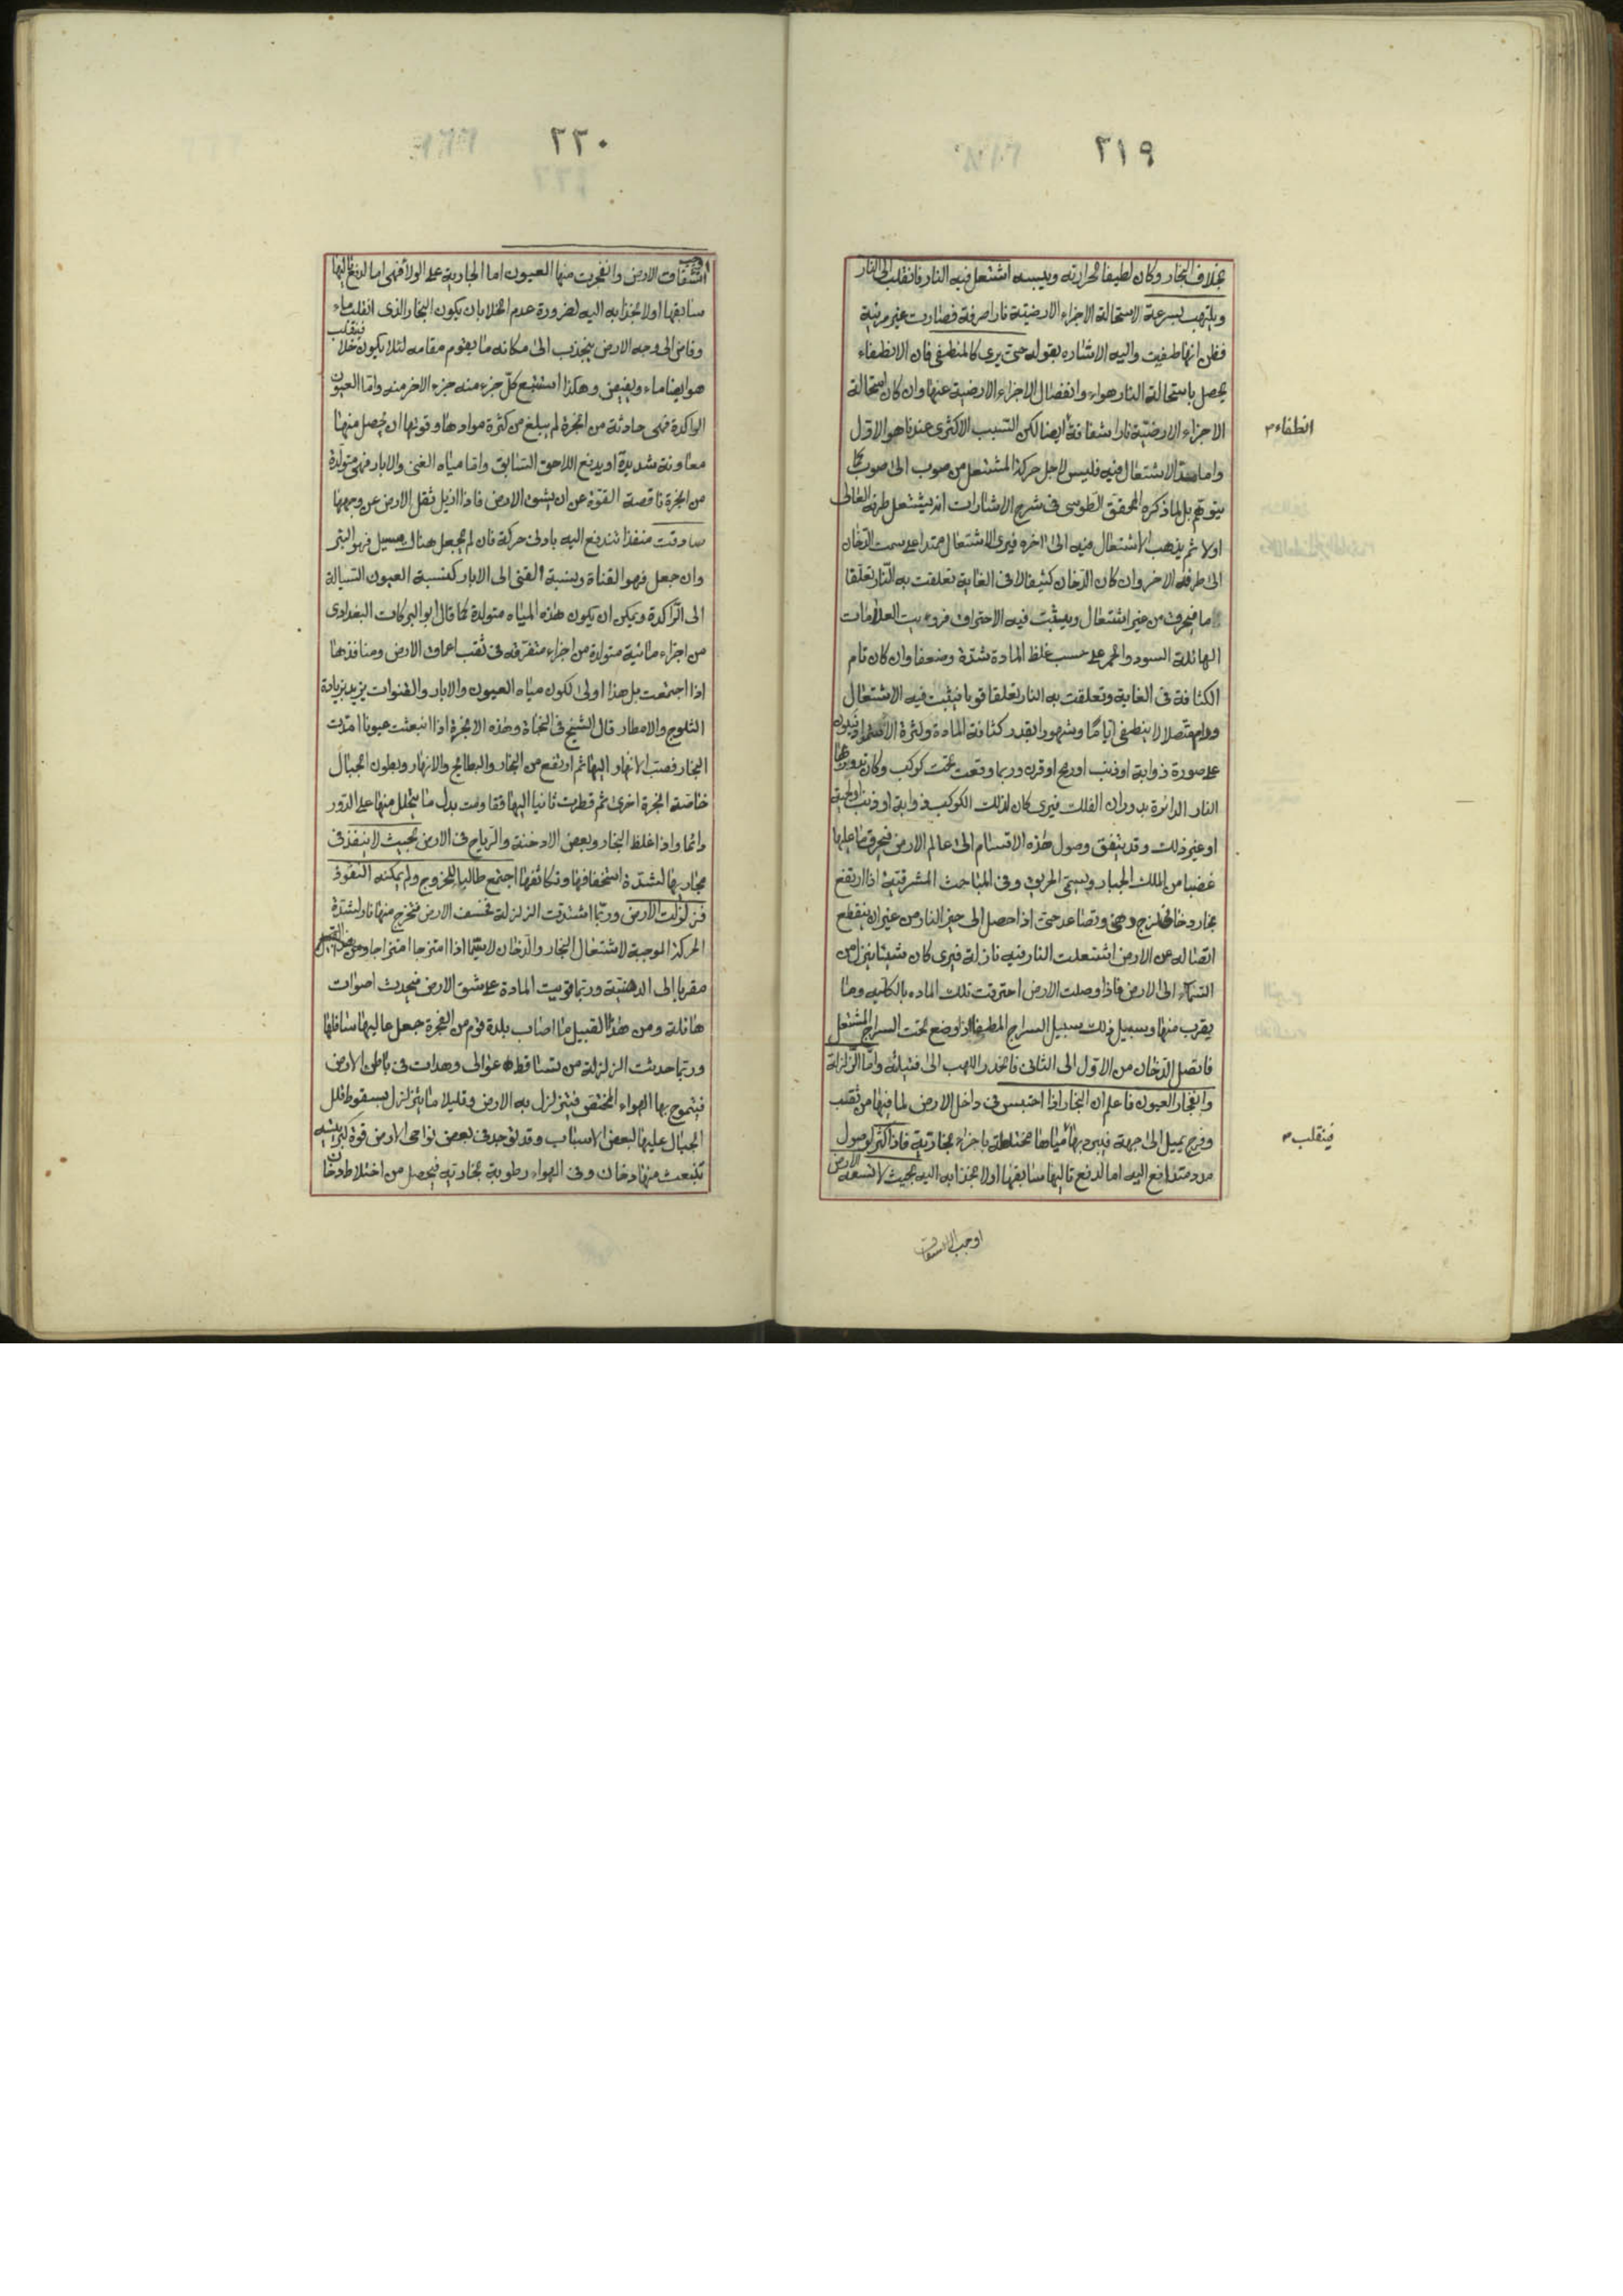 ٢١٩
بخلاف البخار وكان لطيفا لحرارته ويبسه اشتعل فيه النار فانقلب الى النار
ويلتهب بسرعة الاستحالة الاجزاء الارضيّة نارا صرفة فصارت غير مرئية
فظن انها طفيت واليه الاشاره بقوله حتى يرى كالمنطفى فان الانطفاء
يحصل باستحالة النار هواء وانفصال الاجزاء الارضية عنها وان كان استحالة
الاجزاء الارضيّة نارا شفافة ايضا لكن السبب الاكثرى عندنا هو الاول
انطفاء
واما الاشتعال فيه فليس لاجل حركة المشتعل من صوب الى صوب كما
يتوهّم بل لما ذكره المحقق الطوسى فى شرح الاشارات انه يشتعل طرفه العالى
اولا ثم يذهب الاشتعال فيه الى اخره فيرى الاشتعال ممتدا على سمت الدخان
الى طرفه الاخر وان كان الدخان كثيفا لا فى الغاية تعلقت به النار تعلّقا
ما فيحرق من غير اشتعال ويثبت فيه الاحتراق فروءيت العلامات
الهائلة السود والحمر على حسب غلظ المادة شدّة وضعفا وان كان تام
الكثافة فى الغاية وتعلقت به النار تعلقا قويا فيثبت فيه الاشتعال
ودام متصلا لا ينطفى ايّاما وشهورا بقدر كثافة المادة وكثرة
على صورة ذوابة او ذنب او رمح او قرن وربما وقعت تحت كوكب وكان
النار الدائرة بدوران الفلك فيرى كان لذلك الكوكب ذوابة او ذنب او لحية
او غير ذلك وقد يتفق وصول هذه الاقسام الى عالم الارض فيحرق ما عليها
غضبا من الملك الجبار ويسمى الحريق وفى المباحث المشرقية اذا ارتفع
بخار دخانى لزج دهنى وتصاعد حتى اذا حصل الى حيز النار من غير ان ينقطع
اتصاله عن الارض اشتعلت النار فيه نازلة فيرى كان شيئا ينزل من
السماء الى الارض فاذا وصلت الارض احترقت تلك الماده بالكليه وما
يقرب منها وسبيل ذلك سبيل السراج المطفا اذا وضع تحت السراج المشتعل
فاتصل الدخان من الاول الى الثانى فانحدر اللهب الى فتيلته واما الزلزلة
وانفجار العيون فاعلم ان البخار اذا احتبس فى داخل الارض لما فيها من ثقب
وفرج يميل الى جهة فيبرد بها مياها مختلطة باجزاء بخارتية فاذا كثر لوصول
فينقلب
مدد متدافع اليه اما لدفع تاليها سابقها اولا نجذابه اليه بحيث لا تسعه الارض
اوجب الانشقاق
٢٢٠
اوجب
انشقاق الارض وانفجرت منها العيون اما الجارية على الولا فهى اما لدفع تاليها
سابقها اولا نجذابه اليه لضرورة عدم الخلا بان يكون البخار الذى انقلب ماء
وفاض الى وجه الارض ينجذب الى مكانه ما يقوم مقامه لئلا يكون خلا فينقلب
هو ايضا ماء ويفيض وهكذا استتبع كلّ جزء منه جزء الاخر منه واما العيون
الراكدة فهى حادثة من ابخرة لم يبلغ من كثرة موادها وقوتها ان يحصل منها
معاونة شديدة او يدفع اللاحق السابق واما مياه القنى والابار فهى متولدة
من ابخرة ناقصة القوّة عن ان يشق الارض فاذا ازيل ثقل الارض عن وجهها
صادفت منفذا تندفع اليه بادنى حركة فان لم يجعل هناك مسيل فهو البئر
وان جعل فهو القناة ونسبة القنى الى الابار كنسبة العيون السيالة
الى الرّاكدة ويمكن ان يكون هذه المياه متولدة كما قال ابو البركات البغدادى
من اجزاء مائية متولدة من اجزاء متفرّقه فى ثقب اعماق الارض ومنافذها
اذا اجتمعت بل هذا اولى لكون مياه العيون والابار والقنوات يزيد بزيادة
الثلوج والامطار قال الشيخ فى النجاة وهذه الابخرة اذا انبعثت عيونا امدّت
البحار فصب الانهار اليها ثم ارتفع من البحار والبطائح والانهار وبطون الجبال
خاصّة ابخرة اخرى ثم قطرت ثانيا اليها فقامت بدل ما يتحلل منها على الدّور
دائما واذا غلظ البخار وبعض الادخنة والرّياح فى الارض بحيث لا ينفذ فى
مجاريها لشدّة استحصافها وتكاثفها اجتمع طالبا للخروج ولم يمكنه النفوذ
فزلزلت الارض وربّما اشتدت الزلزلة فخسف الارض فخرج منها نار لشدّة
الحركة الموجبة لاشتعال البخار والدّخان لاسيّما اذا امتزجا امتزاجا
مقربا إلى الدهنيّة وربما قويت المادة على شق الارض فيحدث اصوات
هائلة ومن هذا القبيل ما اصاب بلدة قوم من الفجرة جعل عاليها سافلها
وربّما حدثت الزلزلة من تساقط عوالى وهدات فى باطن الارض
فيتموج بها الهواء المحتقن فيتزلزل به الارض وقليلا ما يتزلزل بسقوط قلل
الجبال عليها لبعض الاسباب وقد توجد فى بعض نواحى الارض قوة كبريتيه
تنبعث منها دخان وفى الهواء رطوبة بخاريّه فيحصل من اختلاط دخان